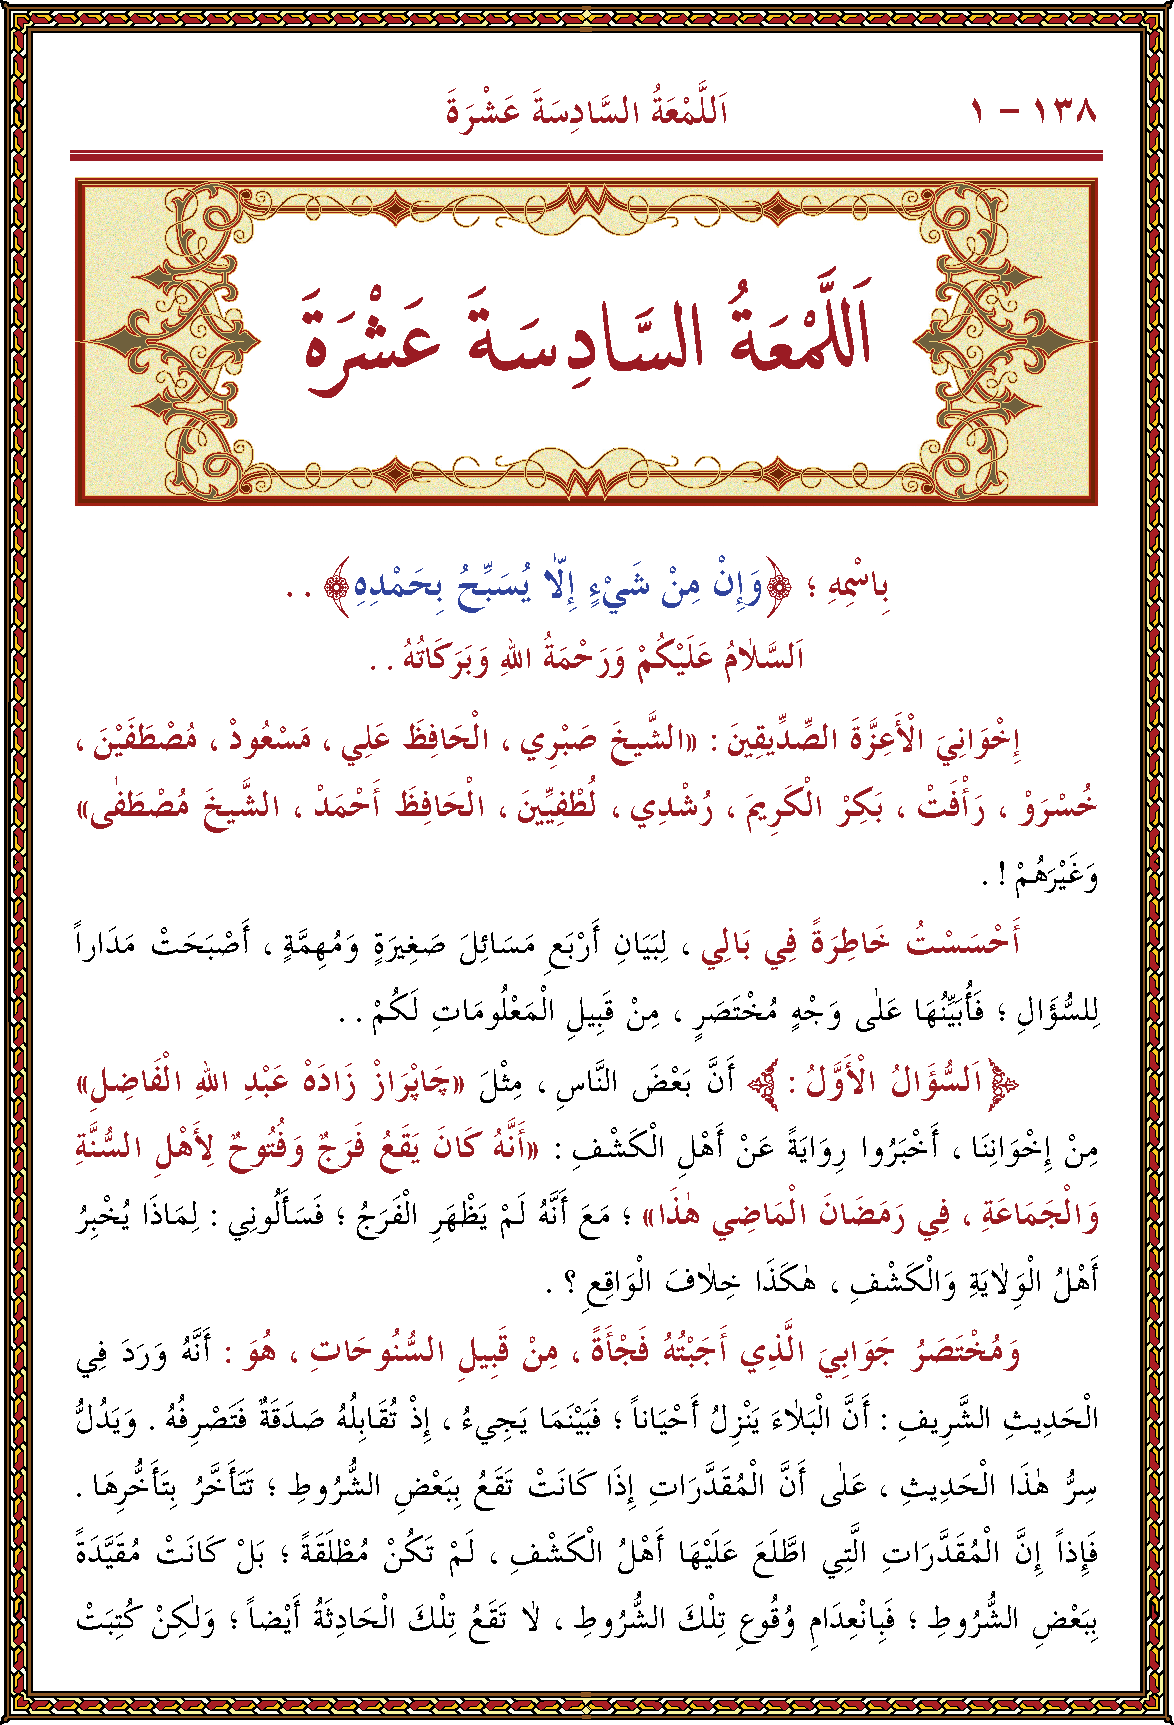 ١٣٨ – ١
اَللَّمْعَةُ السَّادِسَةَ عَشْرَةَ
اَللَّمْعَةُ السَّادِسَةَ عَشْرَةَ
بِاسْمِهِ ؛ ﴿وَإِنْ مِنْ شَيْءٍ إِلَّا يُسَبِّحُ بِحَمْدِهِ﴾ . .
اَلسَّلَامُ عَلَيْكُمْ وَرَحْمَةُ اللهِ وَبَرَكَاتُهُ . .
إِخْوَانِيَ الْأَعِزَّةَ الصِّدِّيقِينَ : «الشَّيخَ صَبْرِي ، الْحَافِظَ عَلِي ، مَسْعُودْ ، مُصْطَفَيْنَ ،
خُسْرَوْ ، رَأْفَتْ ، بَكِرْ الْكَرِيمَ ، رُشْدِي ، لُطْفِيِّينَ ، الْحَافِظَ أَحْمَدْ ، الشَّيخَ مُصْطَفٰى»
وَغَيْرَهُمْ ! .
أَحْسَسْتُ خَاطِرَةً فِي بَالِي ، لِبَيَانِ أَرْبَعِ مَسَائِلَ صَغِيَرةٍ وَمُهِمَّةٍ ، أَصْبَحَتْ مَدَاراً
لِلسُّؤَالِ ؛ فَأُبَيِّنُهَا عَلٰى وَجْهٍ مُخْتَصَرٍ ، مِنْ قَبِيلِ الْمَعْلُومَاتِ لَكُمْ . .
﴿اَلسُّؤَالُ الْأَوَّلُ : ﴾ أَنَّ بَعْضَ النَّاسِ ، مِثْلَ «چَاپْرَازْ زَادَهْ عَبْدِ اللهِ الْفَاضِلِ»
مِنْ إِخْوَانِنَا ، أَخْبَرُوا رِوَايَةً عَنْ أَهْلِ الْكَشْفِ : «أَنَّهُ كَانَ يَقَعُ فَرَجٌ وَفُتُوحٌ لِأَهْلِ السُّنَّةِ
وَالْجَمَاعَةِ ، فِي رَمَضَانَ الْمَاضِي هٰذَا» ؛ مَعَ أَنَّهُ لَمْ يَظْهَرِ الْفَرَجُ ؛ فَسَأَلُونِي : لِمَاذَا يُخْبِرُ
أَهْلُ الْوَلَايَةِ وَالْكَشْفِ ، هٰكَذَا خِلَافَ الْوَاقِعِ ؟ .
وَمُخْتَصَرُ جَوَابِيَ الَّذِي أَجَبْتُهُ فَجْأَةً ، مِنْ قَبِيلِ السُّنُوحَاتِ ، هُوَ : أَنَّهُ وَرَدَ فِي
الْحَدِيثِ الشَّرِيفِ : أَنَّ الْبَلَاءَ يَنْزِلُ أَحْيَاناً ؛ فَبَيْنَمَا يَجِيءُ ، إِذْ تُقَابِلُهُ صَدَقَةٌ فَتَصْرِفُهُ . وَيَدُلُّ
سِرُّ هٰذَا الْحَدِيثِ ، عَلٰى أَنَّ الْمُقَدَّرَاتِ إِذَا كَانَتْ تَقَعُ بِبَعْضِ الشُّرُوطِ ؛ تَتَأَخَّرُ بِتَأَخُّرِهَا .
فَإِذاً إِنَّ الْمُقَدَّرَاتِ الَّتِي اطَّلَعَ عَلَيْهَا أَهْلُ الْكَشْفِ ، لَمْ تَكُنْ مُطْلَقَةً ؛ بَلْ كَانَتْ مُقَيَّدَةً
بِبَعْضِ الشُّرُوطِ ؛ فَبِانْعِدَامِ وُقُوعِ تِلْكَ الشُّرُوطِ ، لَا تَقَعُ تِلْكَ الْحَادِثَةُ أَيْضاً ؛ وَلٰكِنْ كُتِبَتْ